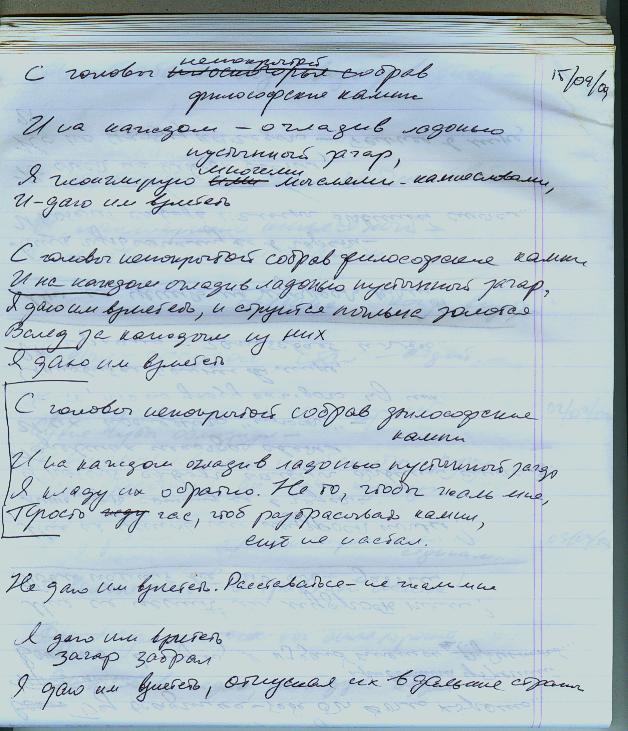 непокрытой
С головы собрав
15/09/09
философские камни
И на каждом – огладив ладонью
пустынный загар,
многими
Я жонглирую мыслями-камнесловами,
И – даю им взлететь
С головы непокрытой собрав философские камни
И на каждом огладив ладонью пустынный загар,
Я даю им взлететь, и струится пыльца золотая
Вслед за каждым из них
Я даю им взлететь
С головы непокрытой собрав философские
камни
И на каждом огладив ладонью пустынный загар
Я кладу их обратно. Не то, чтобы жаль мне,
Просто жду час, чтоб разбрасывать камни,
ещё не настал.
Не даю им взлететь. Расставаться – не жаль мне
Я даю им взлететь
загар забрал
Я даю им взлететь, отпуская их в дальние страны